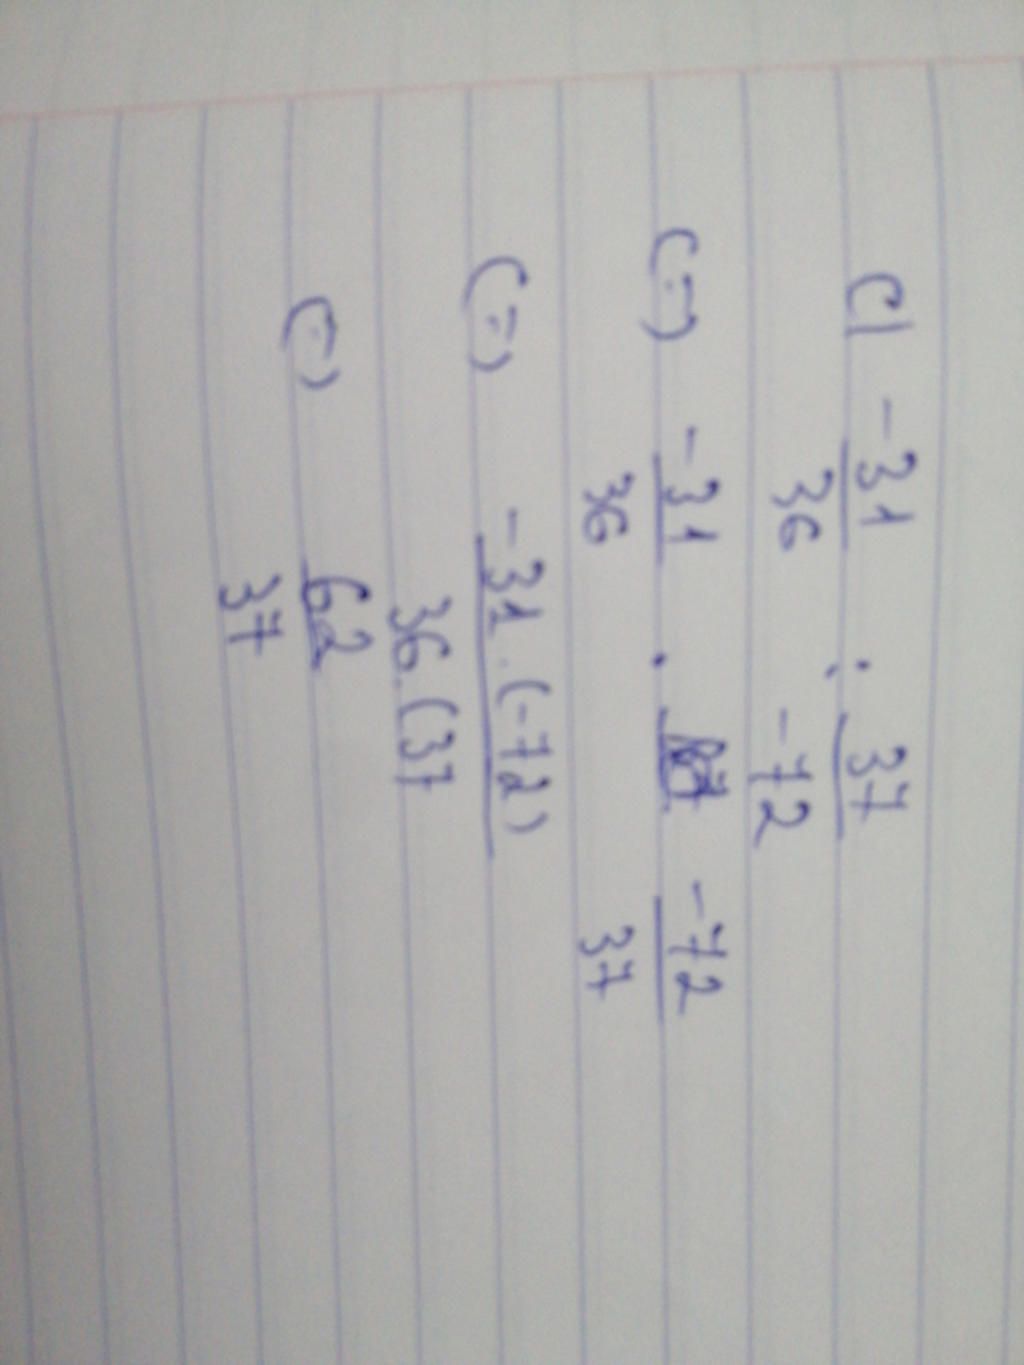 c) -31/36 : 37/-72
(=) -31/36 . -72/37
(=) -31.(-72)/36.(37
(=) 62/37